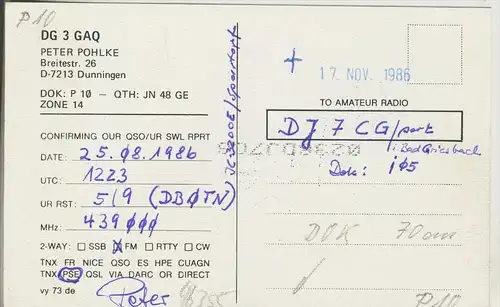 P10
DG 3 GAQ
PETER POHLKE
Breitestr. 26
D-7213 Dunningen
DOK: P 10 — QTH: JN 48 GE
ZONE 14
CONFIRMING OUR QSO/UR SWL RPRT
DATE: 25.08.1986
UTC: 1223
UR RST: 5/9 (DBØTN)
MHz: 439ØØØ
2-WAY: SSB FM RTTY CW
TNX FR NICE QSO ES HPE CUAGN
TNX PSE QSL VIA DARC OR DIRECT
vy 73 de Peter
+
17. NOV. 1986
TO AMATEUR RADIO
DJ7CG/port
i. Bad Griesbach
Dok: iØ5
DOK 70cm
P10